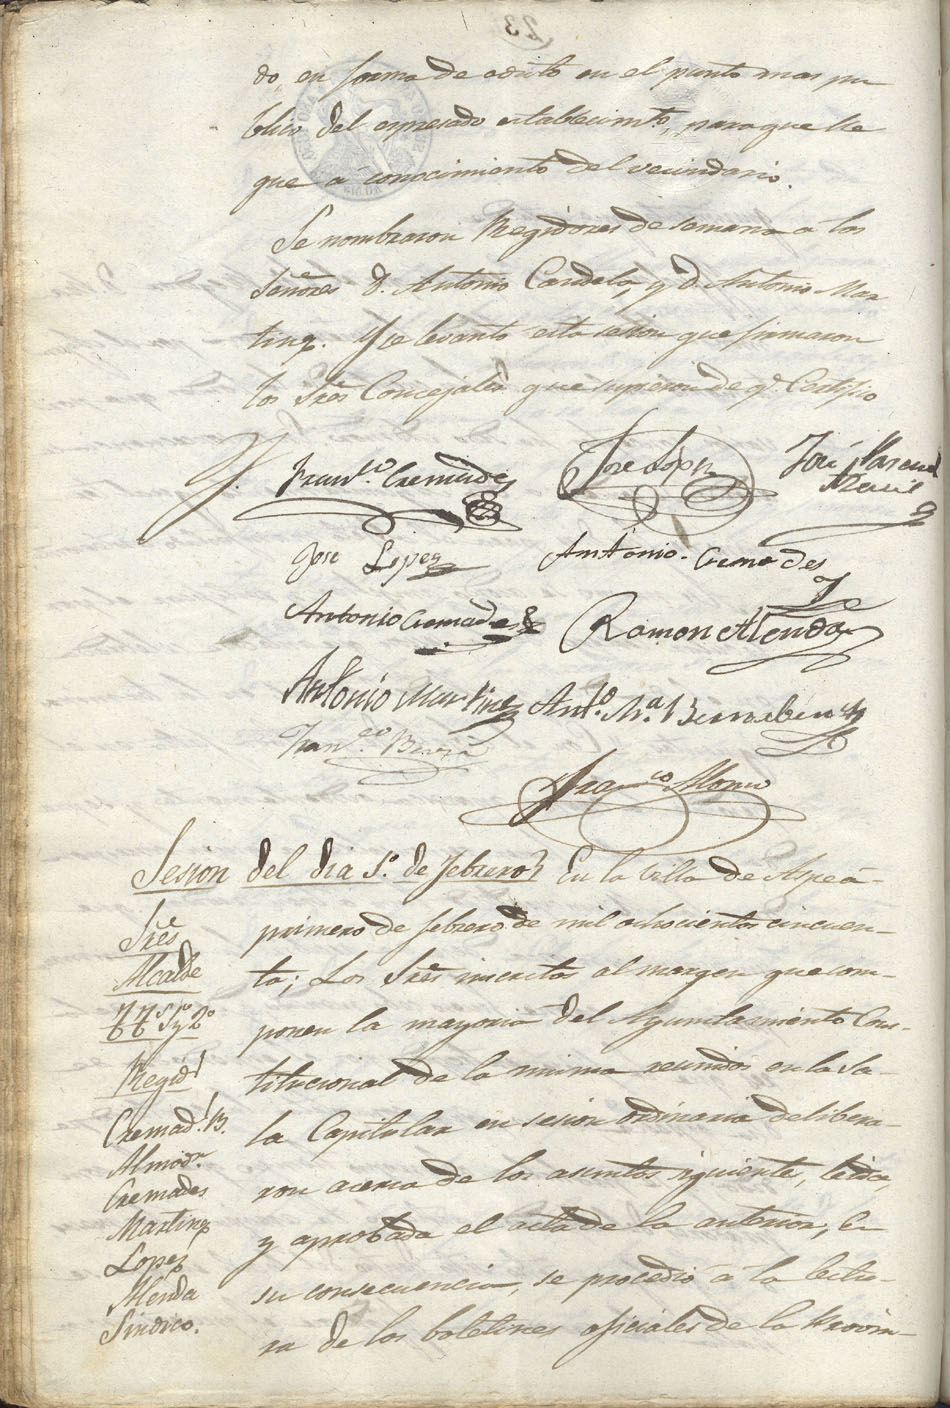 do, en forma de edicto en el punto mas pu
blico del espresado establecimto, para que lle
gue a conocimiento del vecindario.
Se nombraron Regidores de semana á los
Señores D. Antonio Candela, y D. Antonio Mar
tinz. Y se levantó esta sesion que firmaron
los Sres Concejales que supieron de qe Certifico
Franco. Cremades
Jose Lopez
José Pascual
Jose Lopez
Antonio Cremades
Antonio Cremades
Ramon Alenda
Antonio Martinez
Anto. Ma. Bernabeu
Franco.
Franco Alonso
Sesion del dia 1o. de febrero
En la Villa de Aspe á
primero de febrero de mil ochocientos cincuen-
ta; Los Sres inscritos al margen que com-
ponen la mayoria del Ayuntamiento Cons-
titucional de la misma reunidos en la Sa-
la Capitular en sesion ordinaria delibera-
ron acerca de los asuntos siguientes, leida,
y aprobada el acta de la anterior, En
su consecuencia, se procedió á la lectu-
ra de los boletines oficiales de la Provin-
Sres
Alcalde
TTes 1o y 2o
Regid.
Cremads. B.
Almodr.
Cremades
Martinz
Lopez
Alenda
Sindico.